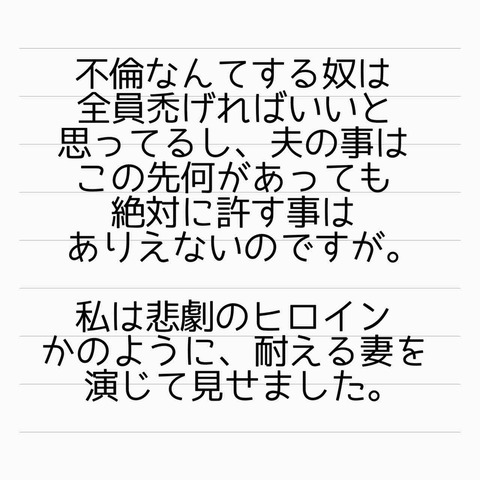 不倫なんてする奴は
全員禿げればいいと
思ってるし、夫の事は
この先何があっても
絶対に許す事は
ありえないのですが。
私は悲劇のヒロイン
かのように、耐える妻を
演じて見せました。